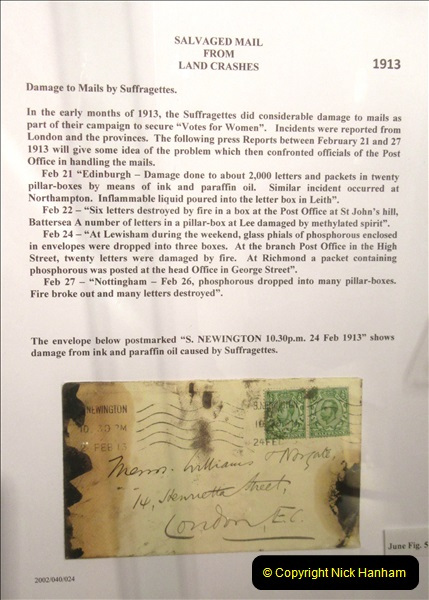 SALVAGED MAIL
FROM
LAND CRASHES
1913
Damage to Mails by Suffragettes.
In the early months of 1913, the Suffragettes did considerable damage to mails as
part of their campaign to secure “Votes for Women”. Incidents were reported from
London and the provinces. The following press Reports between February 21 and 27
1913 will give some idea of the problem which then confronted officials of the Post
Office in handling the mails.
Feb 21 “Edinburgh – Damage done to about 2,000 letters and packets in twenty
pillar-boxes by means of ink and paraffin oil. Similar incident occurred at
Northampton. Inflammable liquid poured into the letter box in Leith”.
Feb 22 – “Six letters destroyed by fire in a box at the Post Office at St John’s hill,
Battersea A number of letters in a pillar-box at Lee damaged by methylated spirit”.
Feb 24 – “At Lewisham during the weekend, glass phials of phosphorous enclosed
in envelopes were dropped into three boxes. At the branch Post Office in the High
Street, twenty letters were damaged by fire. At Richmond a packet containing
phosphorous was posted at the head Office in George Street”.
Feb 27 – “Nottingham – Feb 26, phosphorous dropped into many pillar-boxes.
Fire broke out and many letters destroyed”.
The envelope below postmarked “S. NEWINGTON 10.30p.m. 24 Feb 1913” shows
damage from ink and paraffin oil caused by Suffragettes.
NEWINGTON
10.30 PM
FEB 13
24 FEB
Messrs. Williams & Norgate,
14, Henrietta Street,
London, E.C.
June Fig. 5
2002/040/024
© Copyright Nick Hanham